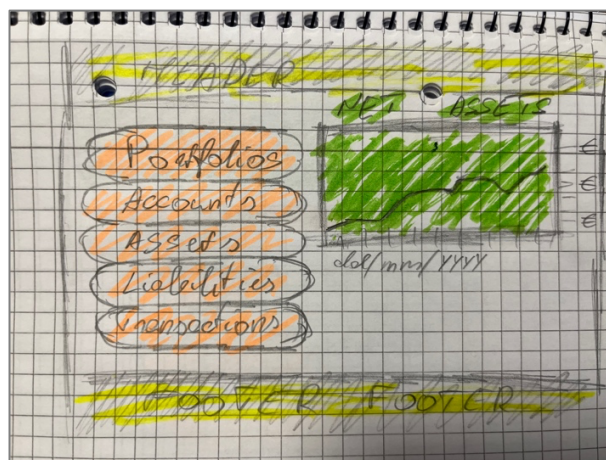 HEADER
NET ASSETS
Portfolios
Accounts
ASSETS
Liabilities
Transactions
€
€
€
dd/mm/YYYY
FOOTER FOOTER